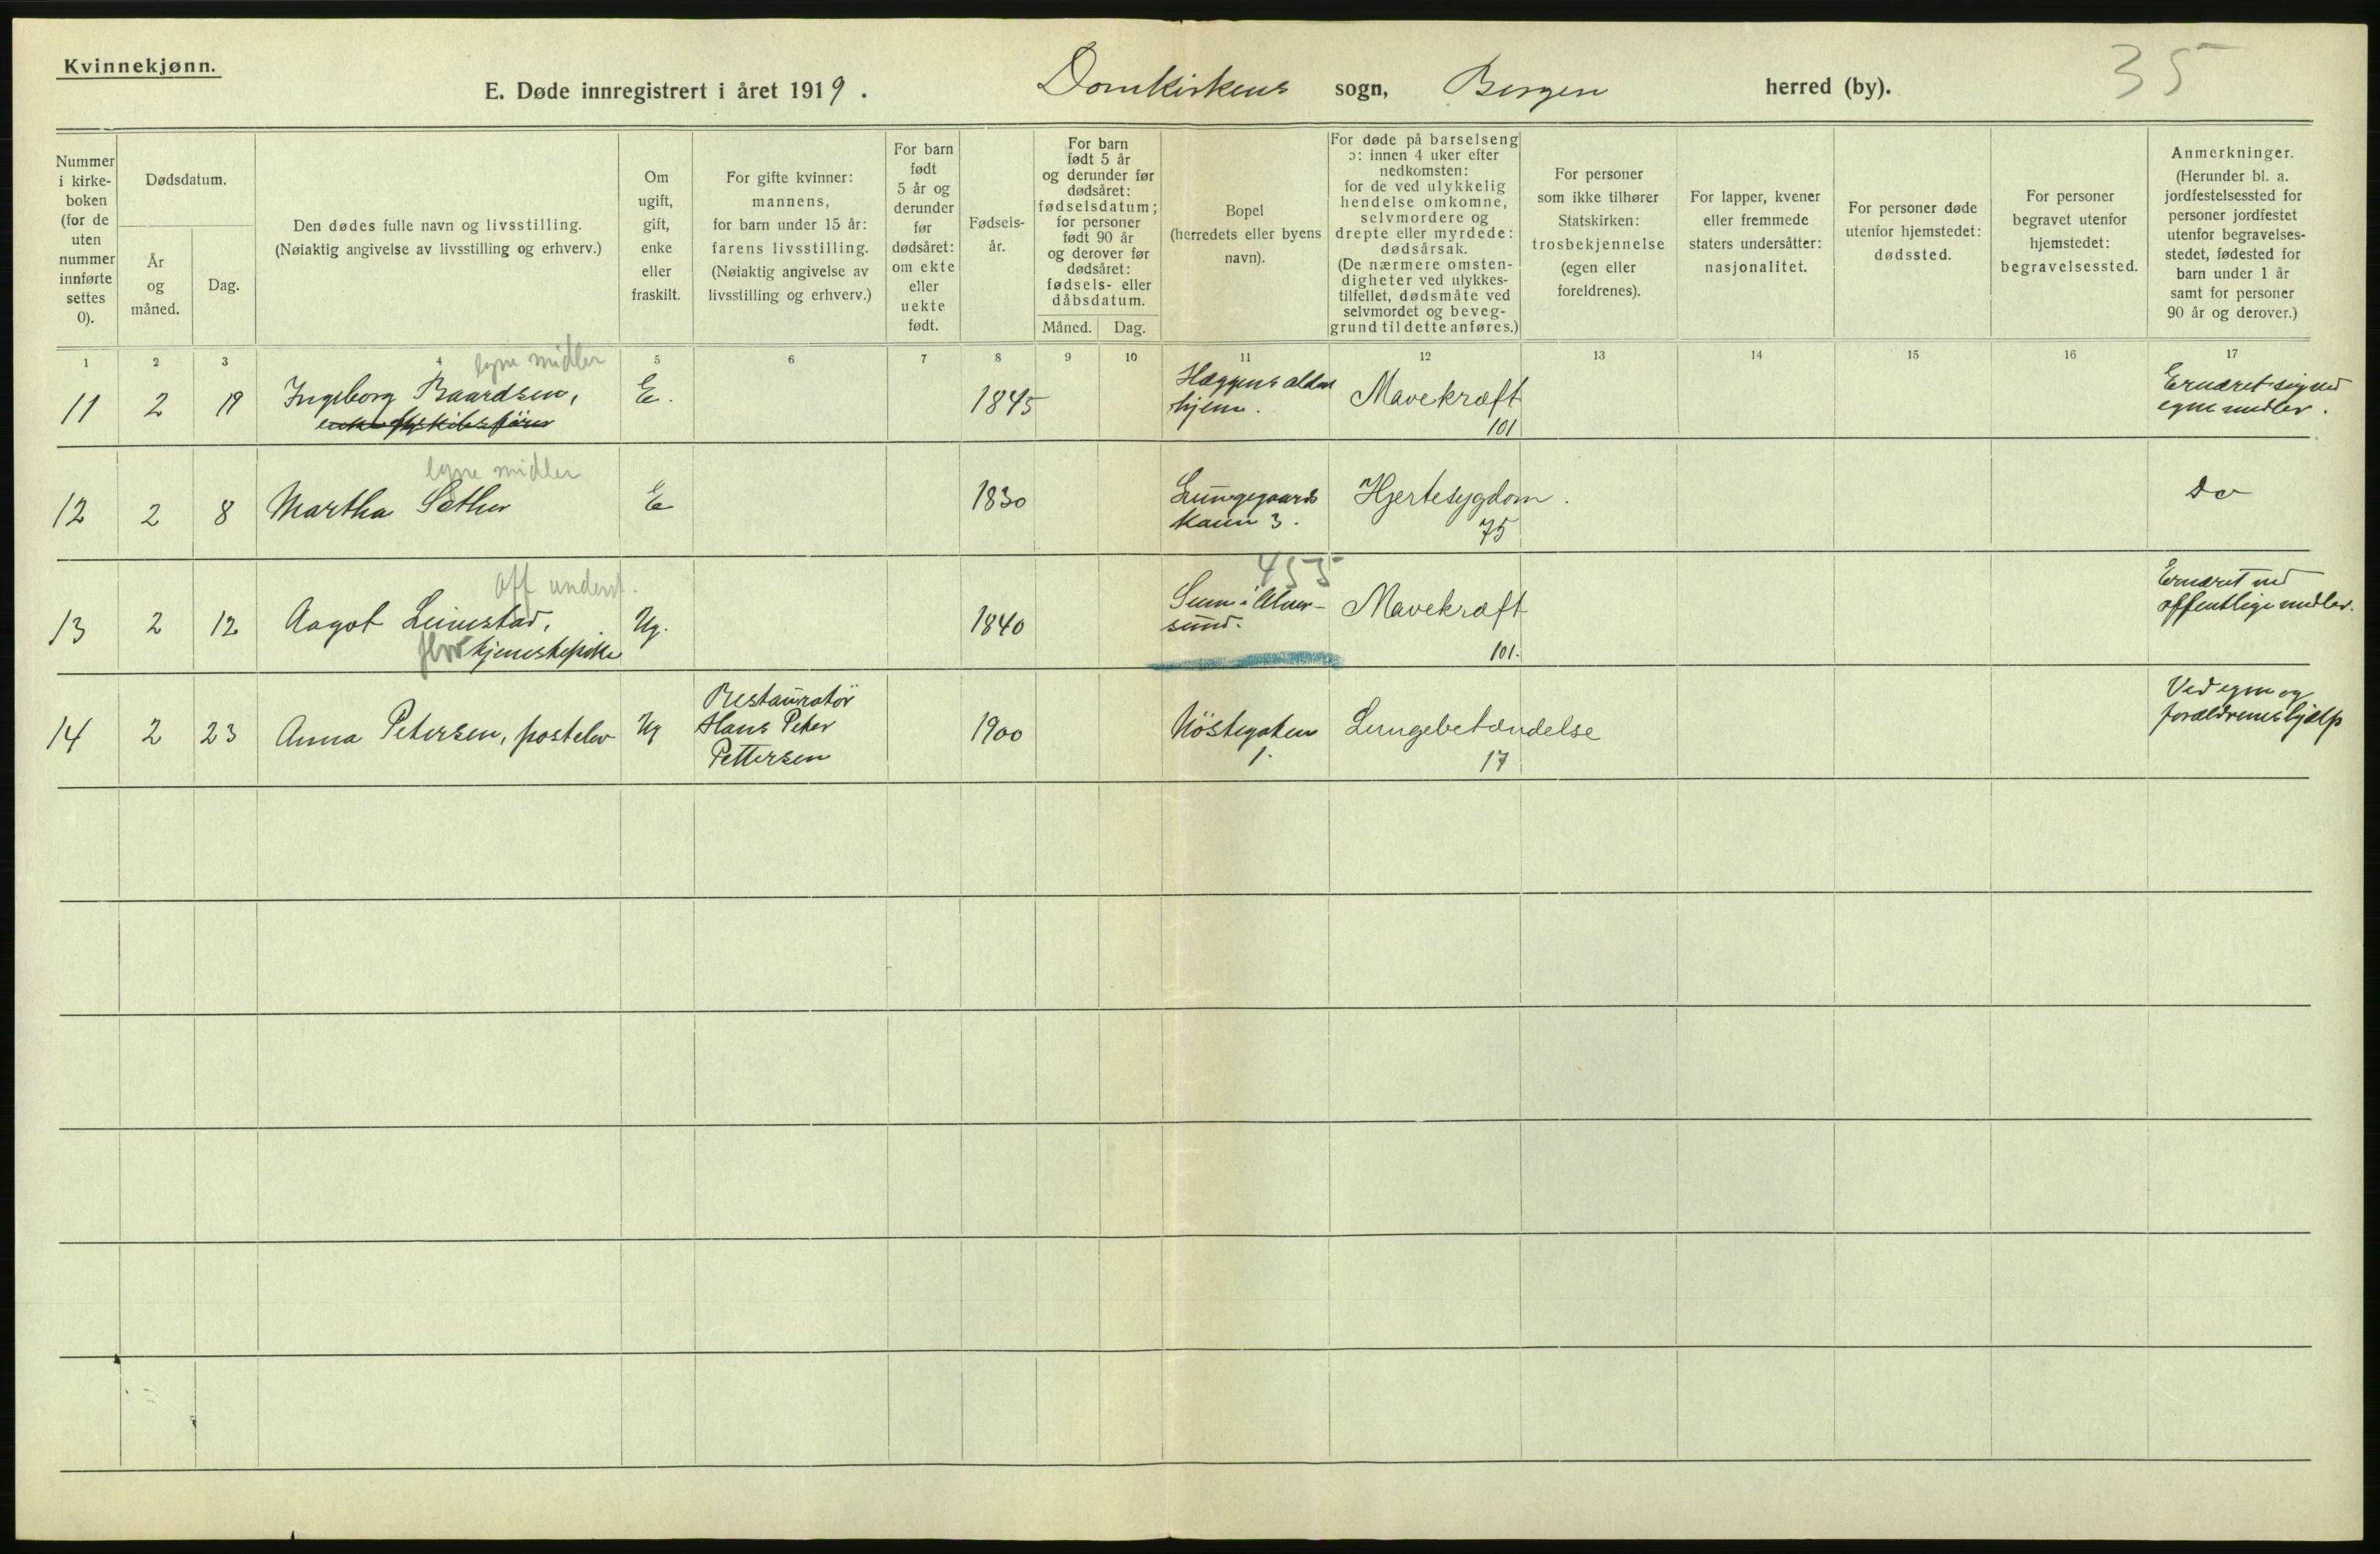 Kvinnekjønn.
35
E. Døde innregistrert i året 1919. Domkirkens sogn, Bergen herred (by).
Nummer i kirke- boken (for de uten nummer innførte settes 0).
Dødsdatum.
År og måned.
Dag.
Den dødes fulle navn og livsstilling.
(Nøiaktig angivelse av livsstilling og erhverv.)
Om ugift, gift, enke eller fraskilt.
For gifte kvinner: mannens, for barn under 15 år: farens livsstilling. (Nøiaktig angivelse av livsstilling og erhverv.)
For barn født 5 år og derunder før dødsåret: om ekte eller uekte født.
Fødsels- år.
For barn født 5 år og derunder før dødsåret: fødselsdatum; for personer født 90 år og derover før dødsåret: fødsels- eller dåbsdatum.
Måned. Dag.
Bopel (herredets eller byens navn).
For døde på barselseng ɔ: innen 4 uker efter nedkomsten: for de ved ulykkelig hendelse omkomne, selvmordere og drepte eller myrdede: dødsårsak. (De nærmere omsten- digheter ved ulykkes- tilfellet, dødsmåte ved selvmordet og beveg- grund til dette anføres.)
For personer som ikke tilhører Statskirken: trosbekjennelse (egen eller foreldrenes).
For lapper, kvener eller fremmede staters undersåtter: nasjonalitet.
For personer døde utenfor hjemstedet: dødssted.
For personer begravet utenfor hjemstedet: begravelsessted.
Anmerkninger. (Herunder bl. a. jordfestelsessted for personer jordfestet utenfor begravelses- stedet, fødested for barn under 1 år samt for personer 90 år og derover.)
1 2 3 4 5 6 7 8 9 10 11 12 13 14 15 16 17
egne midler
11 2 19 Ingeborg Baardsen, E. 1845 Hæggens alders hjem. Mavekræft 101 Ernæret sig ved egne midler.
egne midler
12 2 8 Martha Sæther E 1830 Lungegaards kaien 3. Hjertesygdom. 75 Do
off underst.
455
13 2 12 Aagot Leirestad, Ug. 1840 Seim i Alver- sund. Mavekræft 101. Ernæret ved offentlige midler.
tjenestepike
14 2 23 Anna Petersen, postelev Ug Restauratör Hans Peter Pettersen 1900 Nöstegaten 1. Lungebetændelse 17 Ved egne og forældrenes hjælp